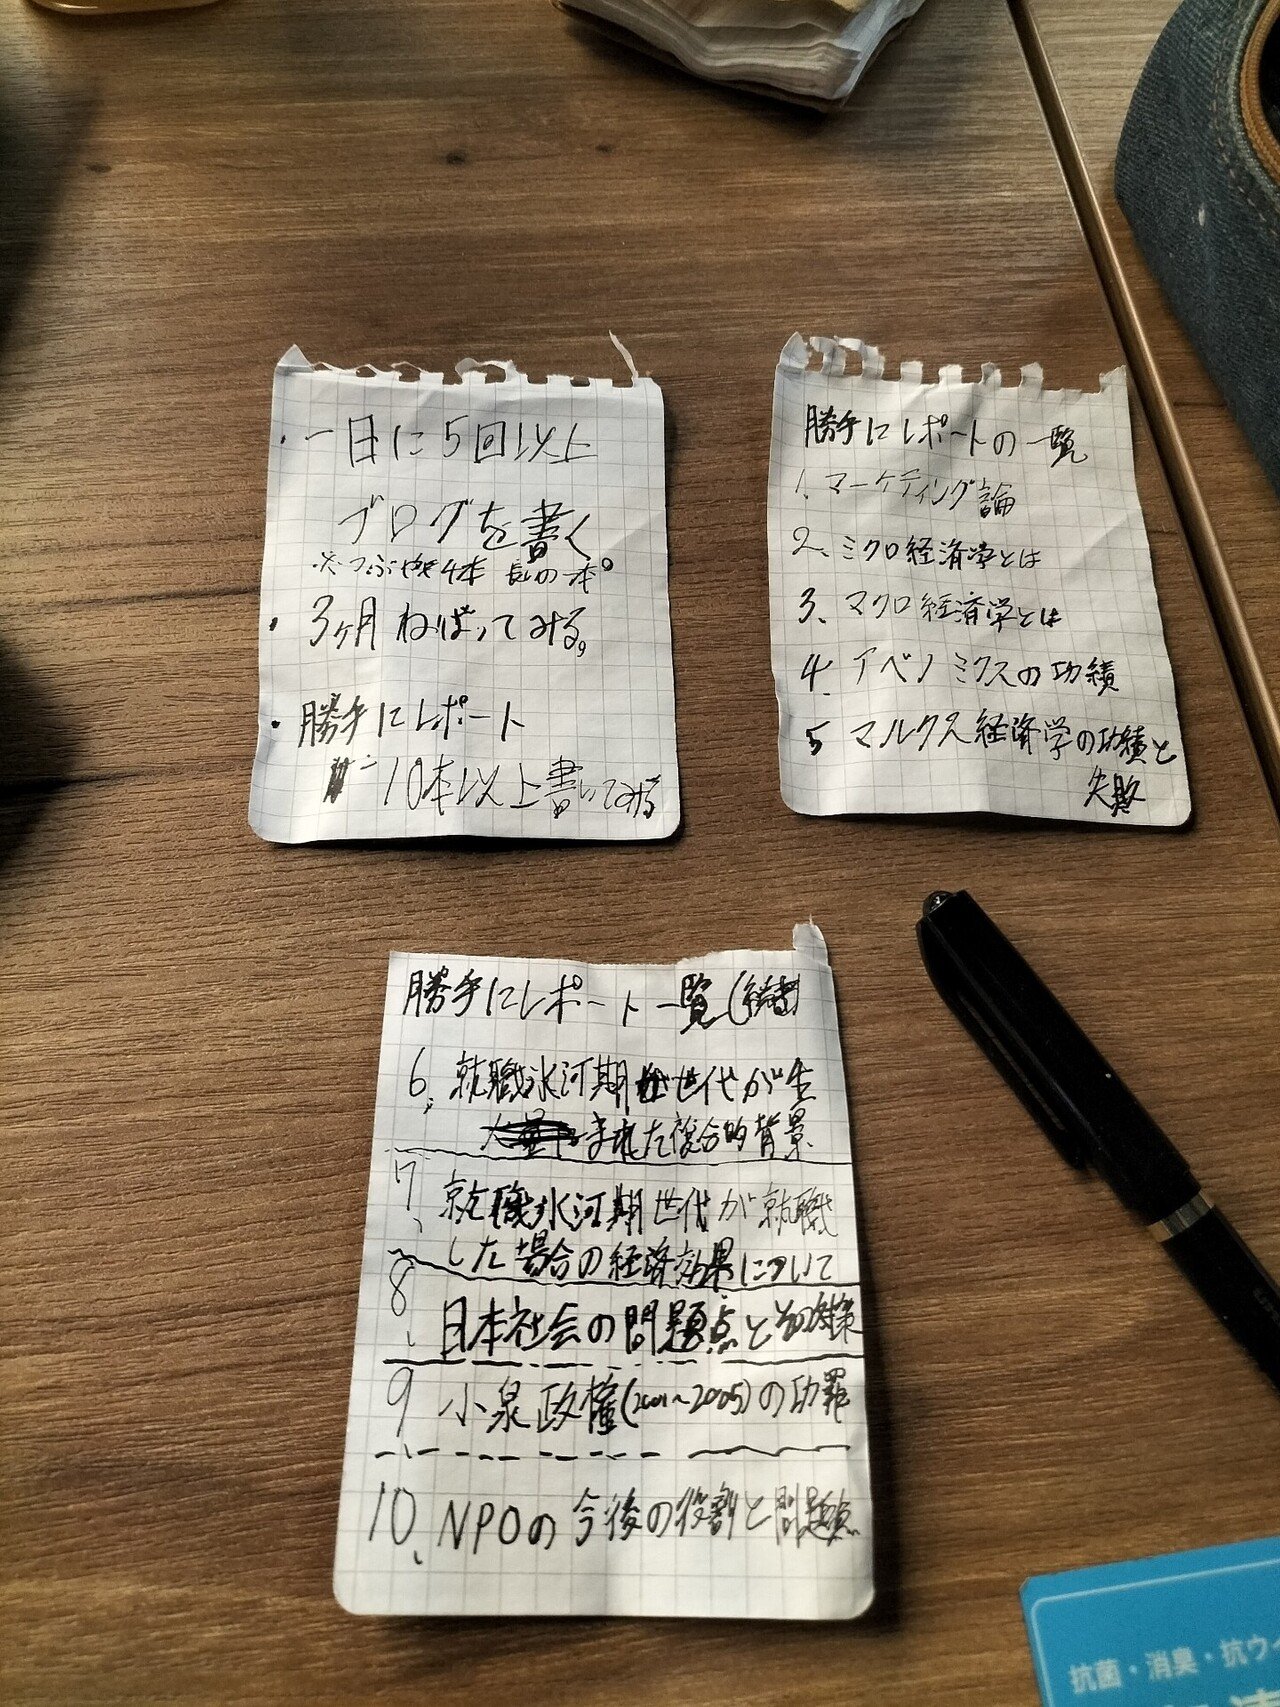 ・一日に5回以上
ブログを書く
※つぶやき4本 長いの一本。
・3ヶ月ねばってみる。
・勝手にレポート
10本以上書いてみる
勝手にレポートの一覧
1、マーケティング論
2、ミクロ経済学とは
3、マクロ経済学とは
4、アベノミクスの功績
5 マルクス経済学の功績と
失敗
勝手にレポート一覧(続き)
6、就職氷河期世代が生
まれた複合的背景
7、就職氷河期世代が就職
した場合の経済効果について
8、日本社会の問題点とその対策
9、小泉政権(2001~2005)の功罪
10、NPOの今後の役割と問題点
抗菌・消臭・抗ウイ